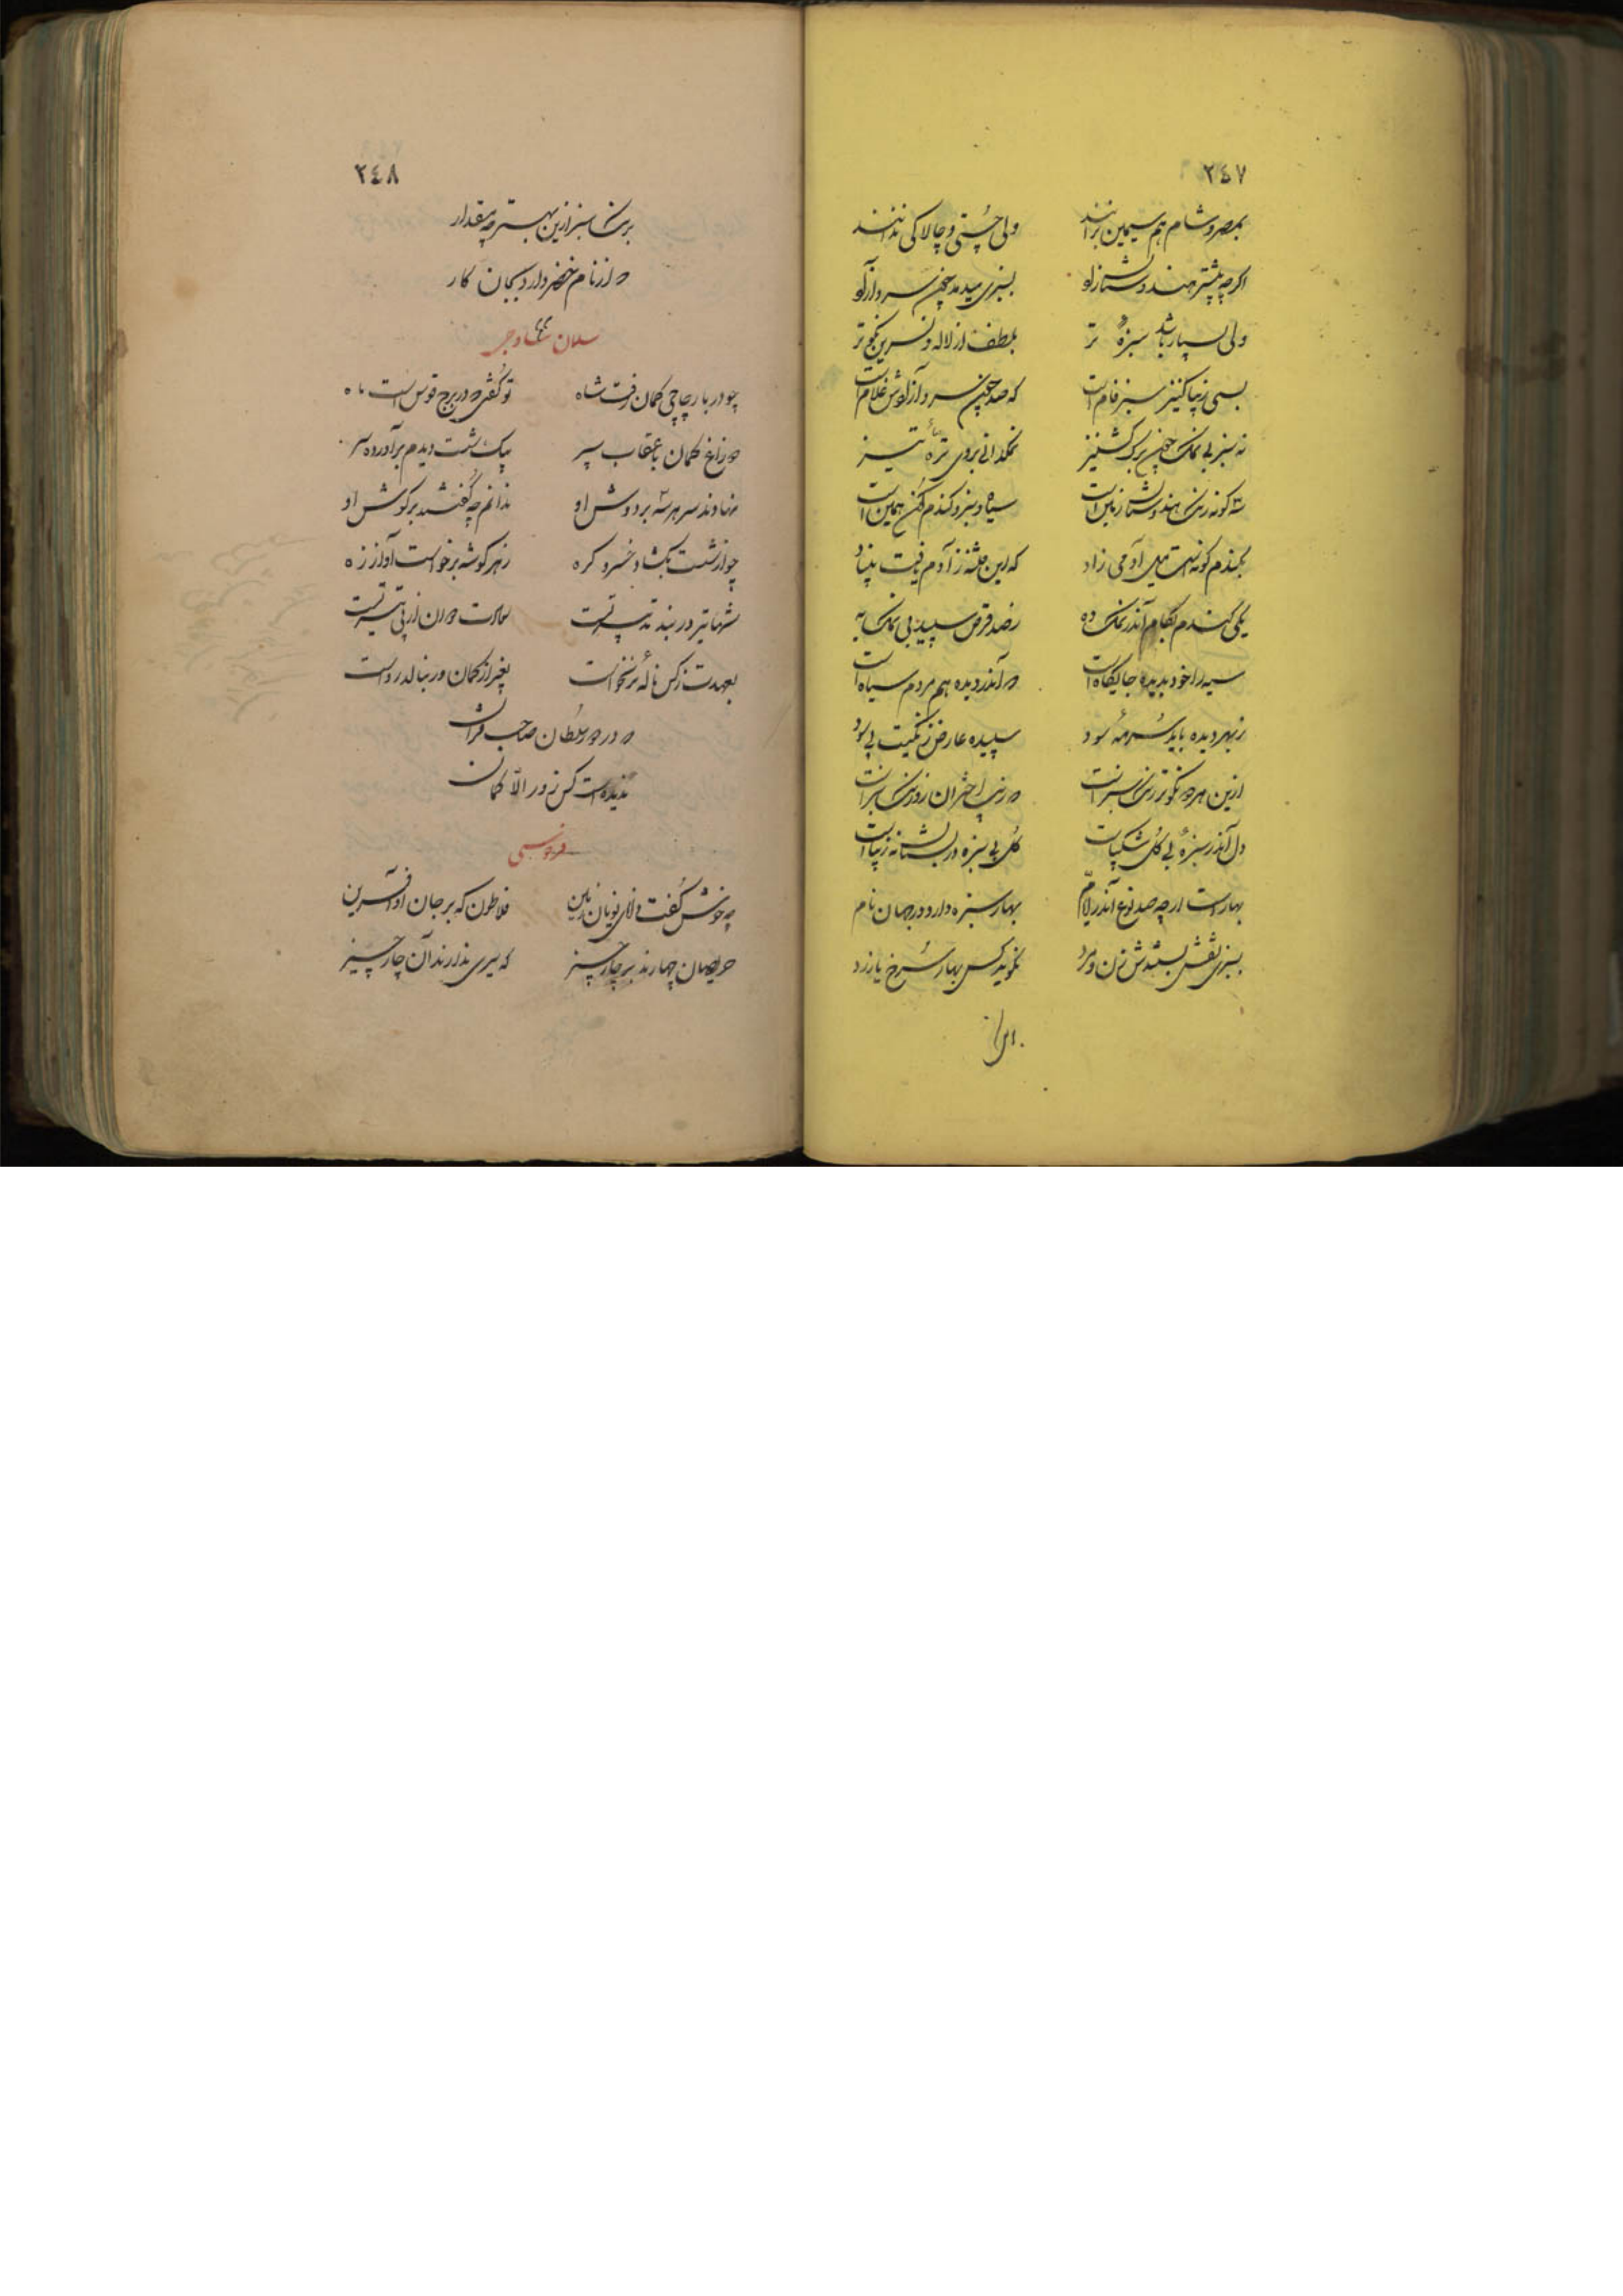 ۲۴۷
بمصر و شام هم سیمین برانند ولی چستی و چالاکی ندانند
اگرچه بیشتر هندوستان زاو بسبزی میدمد چون سرو آزاو
ولی بسیار باشد سبزهٔ تر بلطف از لاله و نسرین نکوتر
بسی زیبا کنیز سبزفام است که صد چون سرو آزاوش غلام است
نه سبز بی نمک چون برگ گشنیز نمکدانی بروی ترهٔ تیز
سه گونه رنگ هندوستان زمین است سیاه و سبز و گندم گون همین است
بگندم گونه است میل آدمی زاد که این فتنه ز آدم یافت بنیاد
یکی گندم بکام اندر نمک ده ز صد قرص سپید بی نمک به
سیه را خود بدیده جایگاه است که اندر دیده هم مردم سیاه است
ز بهر دیده باید سرمه سود سپیده عارض رنگیست بی سود
ازین هر دو نکوتر رنگ سبز است که زیب اختران ز اورنگ سبز است
دل اندر سبزه بی گل شکیباست گل بی سبزه در بستان نه زیباست
بهار است ارچه صد نوع اندر ایام بهار سبزه دارد در جهان نام
بسبزی نقش بستندش زن و مرد نگوید کس بهار سرخ یا زرد
۲۴۸
برنگ سبز ازین بهتر چه مقدار
که از نام خضر دارد بجان کار
سلمان ساوجی
چو در بار چاچی کمان رفت شاه تو گفتی که در برج قوس است ماه
دو زاغ کمان با عقاب سه پر بیک شست دیدم برآورده سر
نهادند سر هر سه بر دوش او ندانم چه گفتند بر گوش او
چو از شست بگشاد خسرو گره ز هر گوشه برخاست آواز زه
شها تیر در بند تدبیر تست سعادت دوان از پی تیر تست
بعهدت ز کس نالهٔ برنخواست بغیر از کمان ور بنالد رواست
که در دور سلطان صاحب قران
ندیده است کس زور الا کمان
فردوسی
چه خوش گفت دانای یونان زمین فلاطون که بر جان او آفرین
حریصان چهارند بر چار چیز که سیری ندارند آن چار چیز